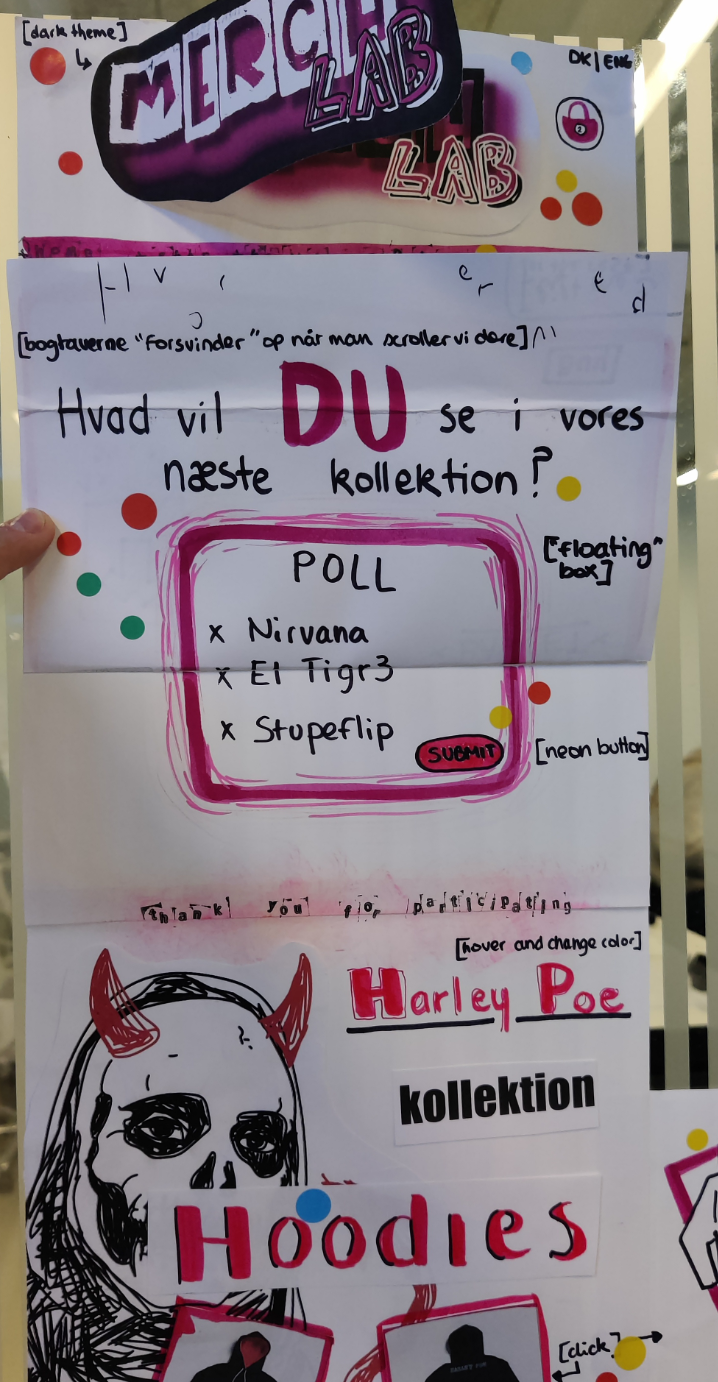 [dark theme]
MERCH
LAB
LAB
DK|ENG
H v e r e d
[bogtaverne "forsvinder" op når man scroller videre]
Hvad vil DU se i vores
næste kollektion?
["floating"
box]
POLL
x Nirvana
x El Tigr3
x Stupeflip
SUBMIT
[neon button]
thank you for participating
[hover and change color]
Harley Poe
kollektion
Hoodies
[click]